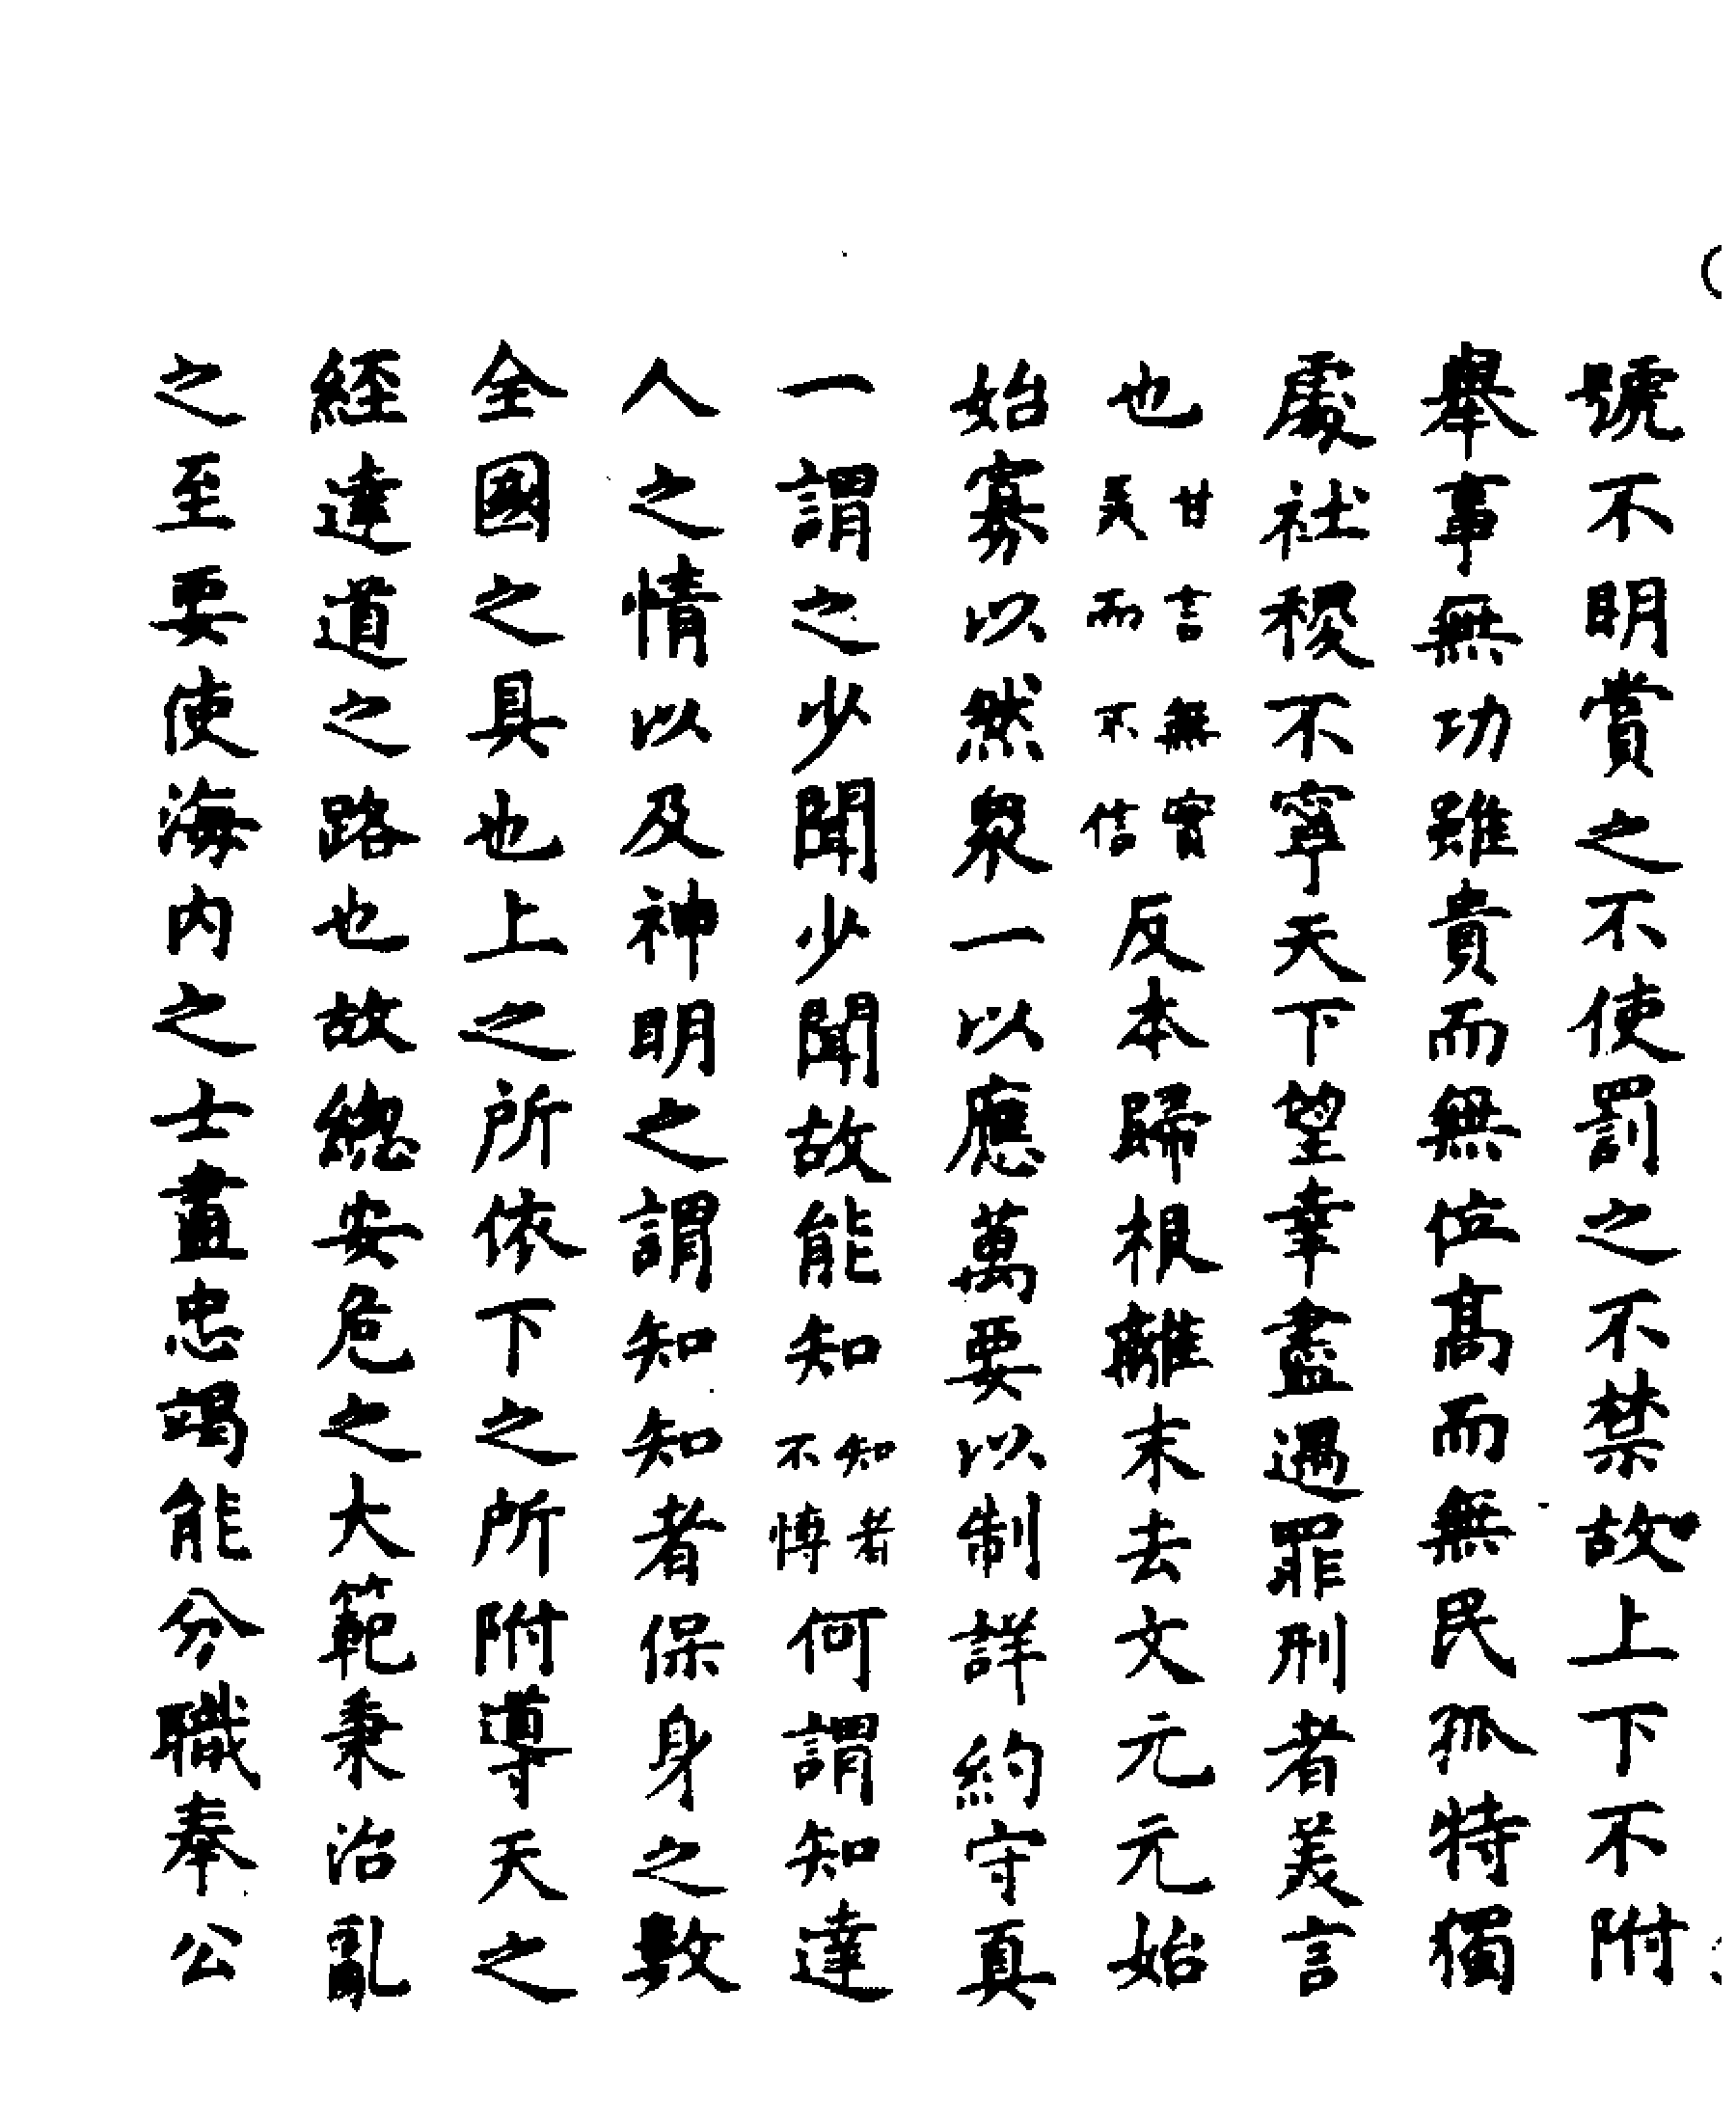 號不明賞之不使罰之不禁故上下不附
舉事無功雖貴而無位高而無民孤特獨
處社稷不寧天下望幸盡過罪刑者美言
也甘言無實美而不信反本歸根離末去文元元始
始寡以然衆一以應萬要以制詳約守真
一謂之少聞少聞故能知知者不博何謂知達
人之情以及神明之謂知知者保身之數
全國之具也上之所依下之所附導天之
經達道之路也故總安危之大範秉治亂
之至要使海內之士盡忠竭能分職奉公